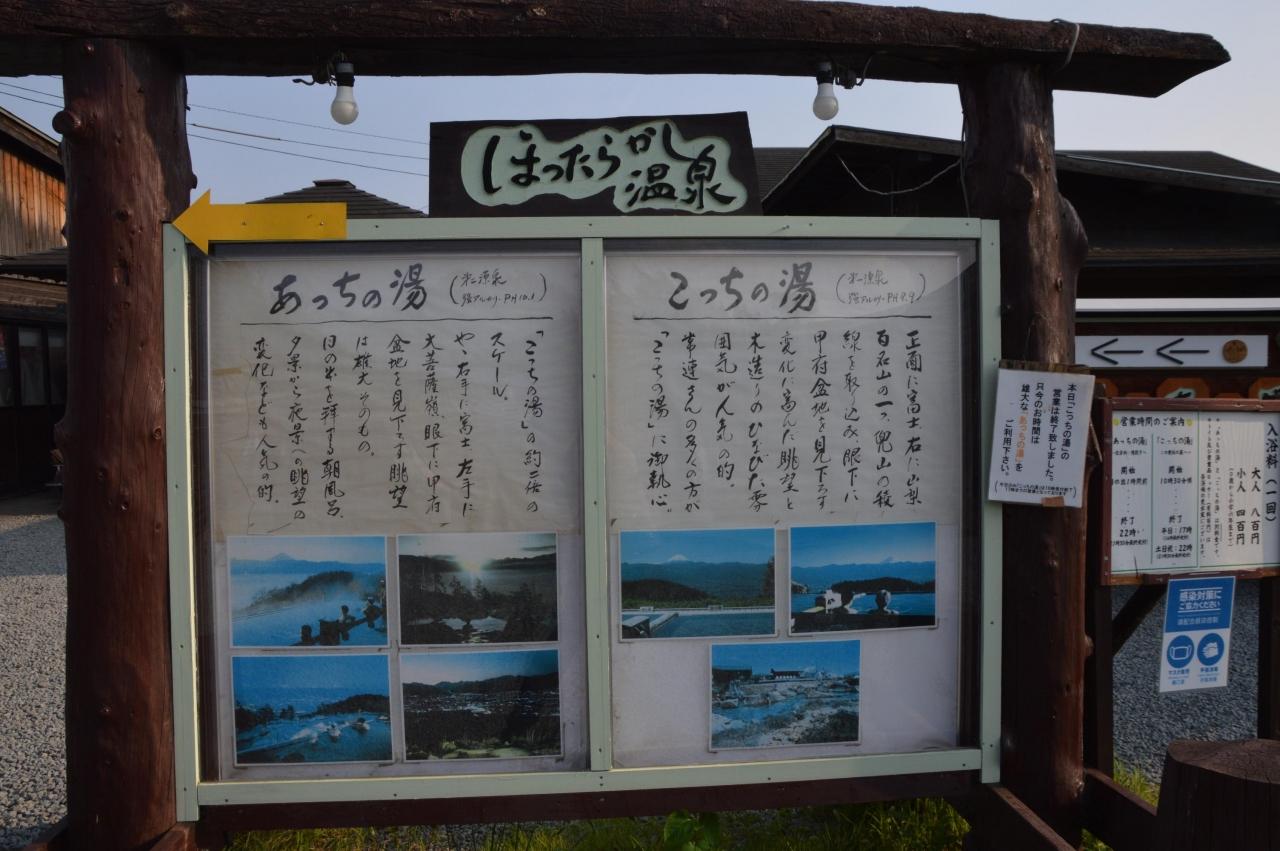 ほったらかし
温泉
あっちの湯
(第二源泉
強アルカリ-PH10.1)
「こっちの湯」の約二倍の
スケール。
やゝ右手に富士、左手に
大菩薩嶺、眼下に甲府
盆地を見下ろす眺望
は雄大そのもの。
日の出を拝する朝風呂、
夕景から夜景への眺望の
変化なども人気の的。
こっちの湯
(第一源泉
強アルカリ-PH9.9)
正面に富士、右に山梨
百名山の一つ、兜山の稜
線を取り込み、眼下に
甲府盆地を見下ろす
変化に富んだ眺望と
木造りのひなびた雰
囲気が人気の的。
常連さんの多くの方が
「こっちの湯」に御執心。
本日「こっちの湯」の
営業は終了致しました。
只今のお時間は
雄大な「あっちの湯」を
ご利用下さい。
入浴料(一回)
大人 八百円
小人 四百円
営業時間のご案内
「こっちの湯」
開始
10時30分頃
終了
平日:17時
土日祝:22時
「あっちの湯」
開始
日の出1時間前
終了
22時
感染対策に
ご協力ください